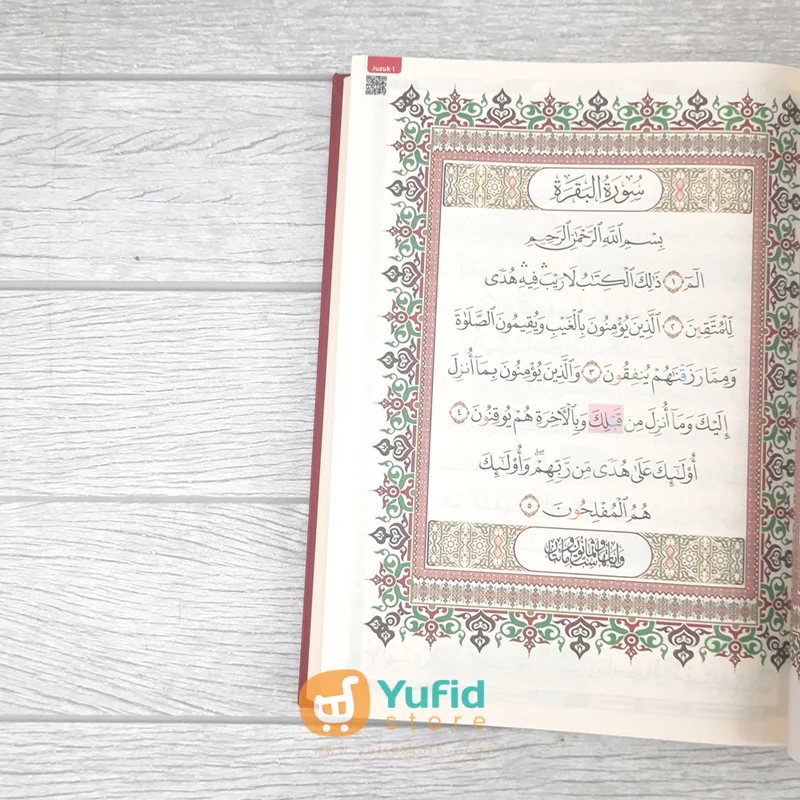 Juzuk 1
سُورَةُ الْبَقَرَةِ
بِسْمِ اللَّهِ الرَّحْمَٰنِ الرَّحِيمِ
الٓمٓ ١ ذَٰلِكَ الْكِتَٰبُ لَا رَيْبَ ۛ فِيهِ ۛ هُدًى
لِّلْمُتَّقِينَ ٢ الَّذِينَ يُؤْمِنُونَ بِالْغَيْبِ وَيُقِيمُونَ الصَّلَوٰةَ
وَمِمَّا رَزَقْنَٰهُمْ يُنفِقُونَ ٣ وَالَّذِينَ يُؤْمِنُونَ بِمَآ أُنزِلَ
إِلَيْكَ وَمَآ أُنزِلَ مِن قَبْلِكَ وَبِالْآخِرَةِ هُمْ يُوقِنُونَ ٤
أُو۟لَٰٓئِكَ عَلَىٰ هُدًى مِّن رَّبِّهِمْ ۖ وَأُو۟لَٰٓئِكَ
هُمُ الْمُفْلِحُونَ ٥
Yufid
store